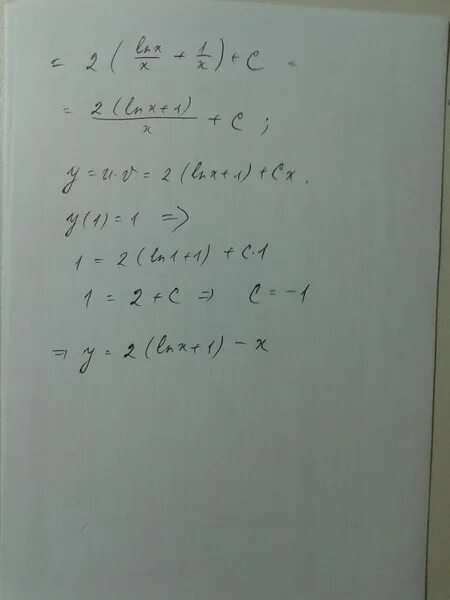 = 2 ( lnx/x + 1/x ) + C =
= 2 (lnx+1)/x + C ;
y = u·v = 2 (lnx+1) + Cx.
y(1) = 1 =>
1 = 2 (ln1+1) + C·1
1 = 2 + C => C = -1
=> y = 2 (lnx+1) - x